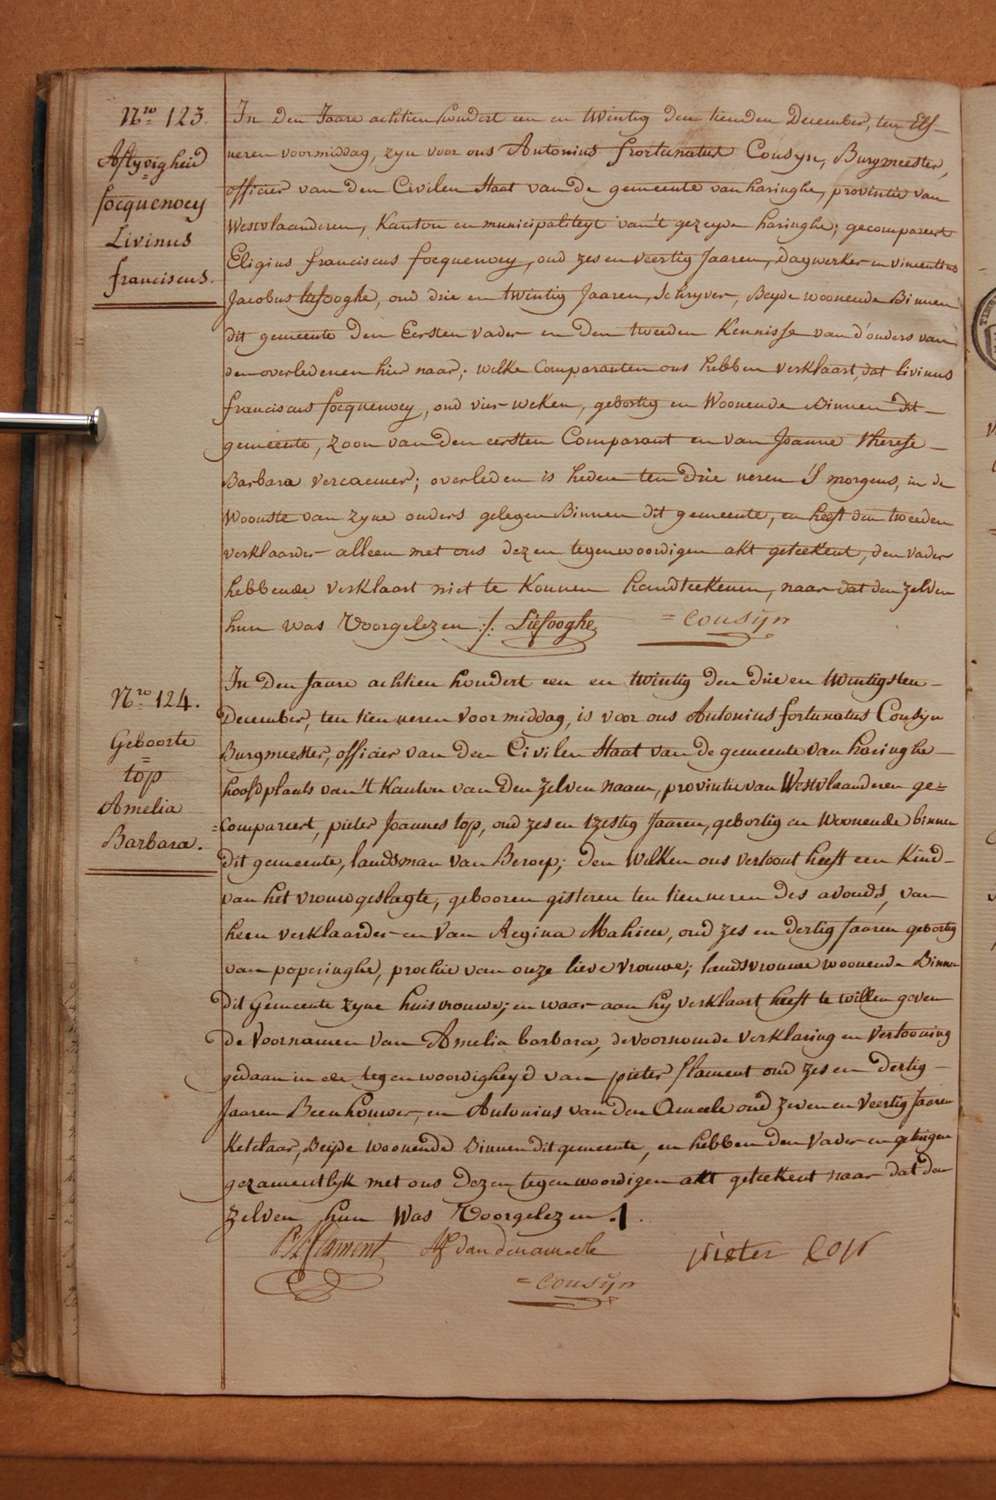 Nro 123.
Aflyvigheid
focquenoey
Livinus
franciscus.
In Den Jaare achtien hondert een en twintig den tienden December, ten Elf
ueren voormiddag, zyn voor ons Antonius frortunatus Cousyn, Burgmeester,
officier van den Civilen Staat van de gemeente van haringhe, provintie van
Westvlaanderen, Kanton en municipaliteyt van 't gezeyde haringhe; gecompareert
Eligius franciscus focquenoey, oud zes en veertig Jaaren, Dagwerker en vincentius
Jacobus liefooghe, oud drie en twintig Jaaren, Schryver, Beyde woonende Binnen
dit gemeente Den Eersten vader en Den tweeden Kennisse van d'ouders van
den overledenen hier naar; welke Comparanten ons hebben verklaart, dat livinus
franciscus focquenoey, oud vier weken, gebortig en Woonende Binnen Dit
gemeente, zoon van Den eersten Comparant en van Joanne Therese
Barbara vercaemer; overleden is heden ten drie ueren 'S morgens, in de
Woonste van zyne ouders gelegen Binnen dit gemeente, en heeft den tweeden
verklaarder alleen met ons dezen tegenwoordigen akt geteekent, den vader
hebbende verklaart niet te Konnen handteekenen, naar dat den zelven
hun was Voorgelezen ./. Liefooghe = Cousijn
Nro 124.
Geboorte
=
top
Amelia
Barbara.
In Den Jaare achtien hondert een en twintig Den drie en twintigsten
December, ten tien ueren voormiddag, is voor ons Antonius fortunatus Cousyn
Burgmeester, officier van den Civilen Staat van de gemeente van haringhe
hoofdplaats van 't Kanton van Den zelven naam, provintie van Westvlaanderen ge=
=compareert, pieter Joannes top, oud zes en tzestig Jaaren, gebortig en Woonende binnen
dit gemeente, landsman van Beroep; Den Welken ons vertoont heeft een Kind
van het vrouwgeslagte, gebooren gisteren ten tien ueren des avonds, van
hem verklaarder en Van Regina Mahieu, oud zes en dertig Jaaren gebortig
van poperinghe, prochie van onze lieve vrouwe; landsvrouwe woonende Binnen
Dit Gemeente zyne huisvrouwe; en waar aan hy verklaart heeft te willen geven
de Voornamen van Amelia barbara, de voornoemde verklaring en Vertooning
gedaan in de tegenwoordigheyd van pieter flament oud zes en dertig
Jaaren Beenhouwer, en Antonius van den Ameele oud zeven en Veertig Jaaren
Ketelaar, Beyde woonende Binnen dit gemeente, en hebben den Vader en getuigen
gezamentlyk met ons Dezen tegenwoordigen akt geteekent naar dat den
zelven hun Was Voorgelezen ./.
Flament Af Vandenameele pieter top
= Cousijn